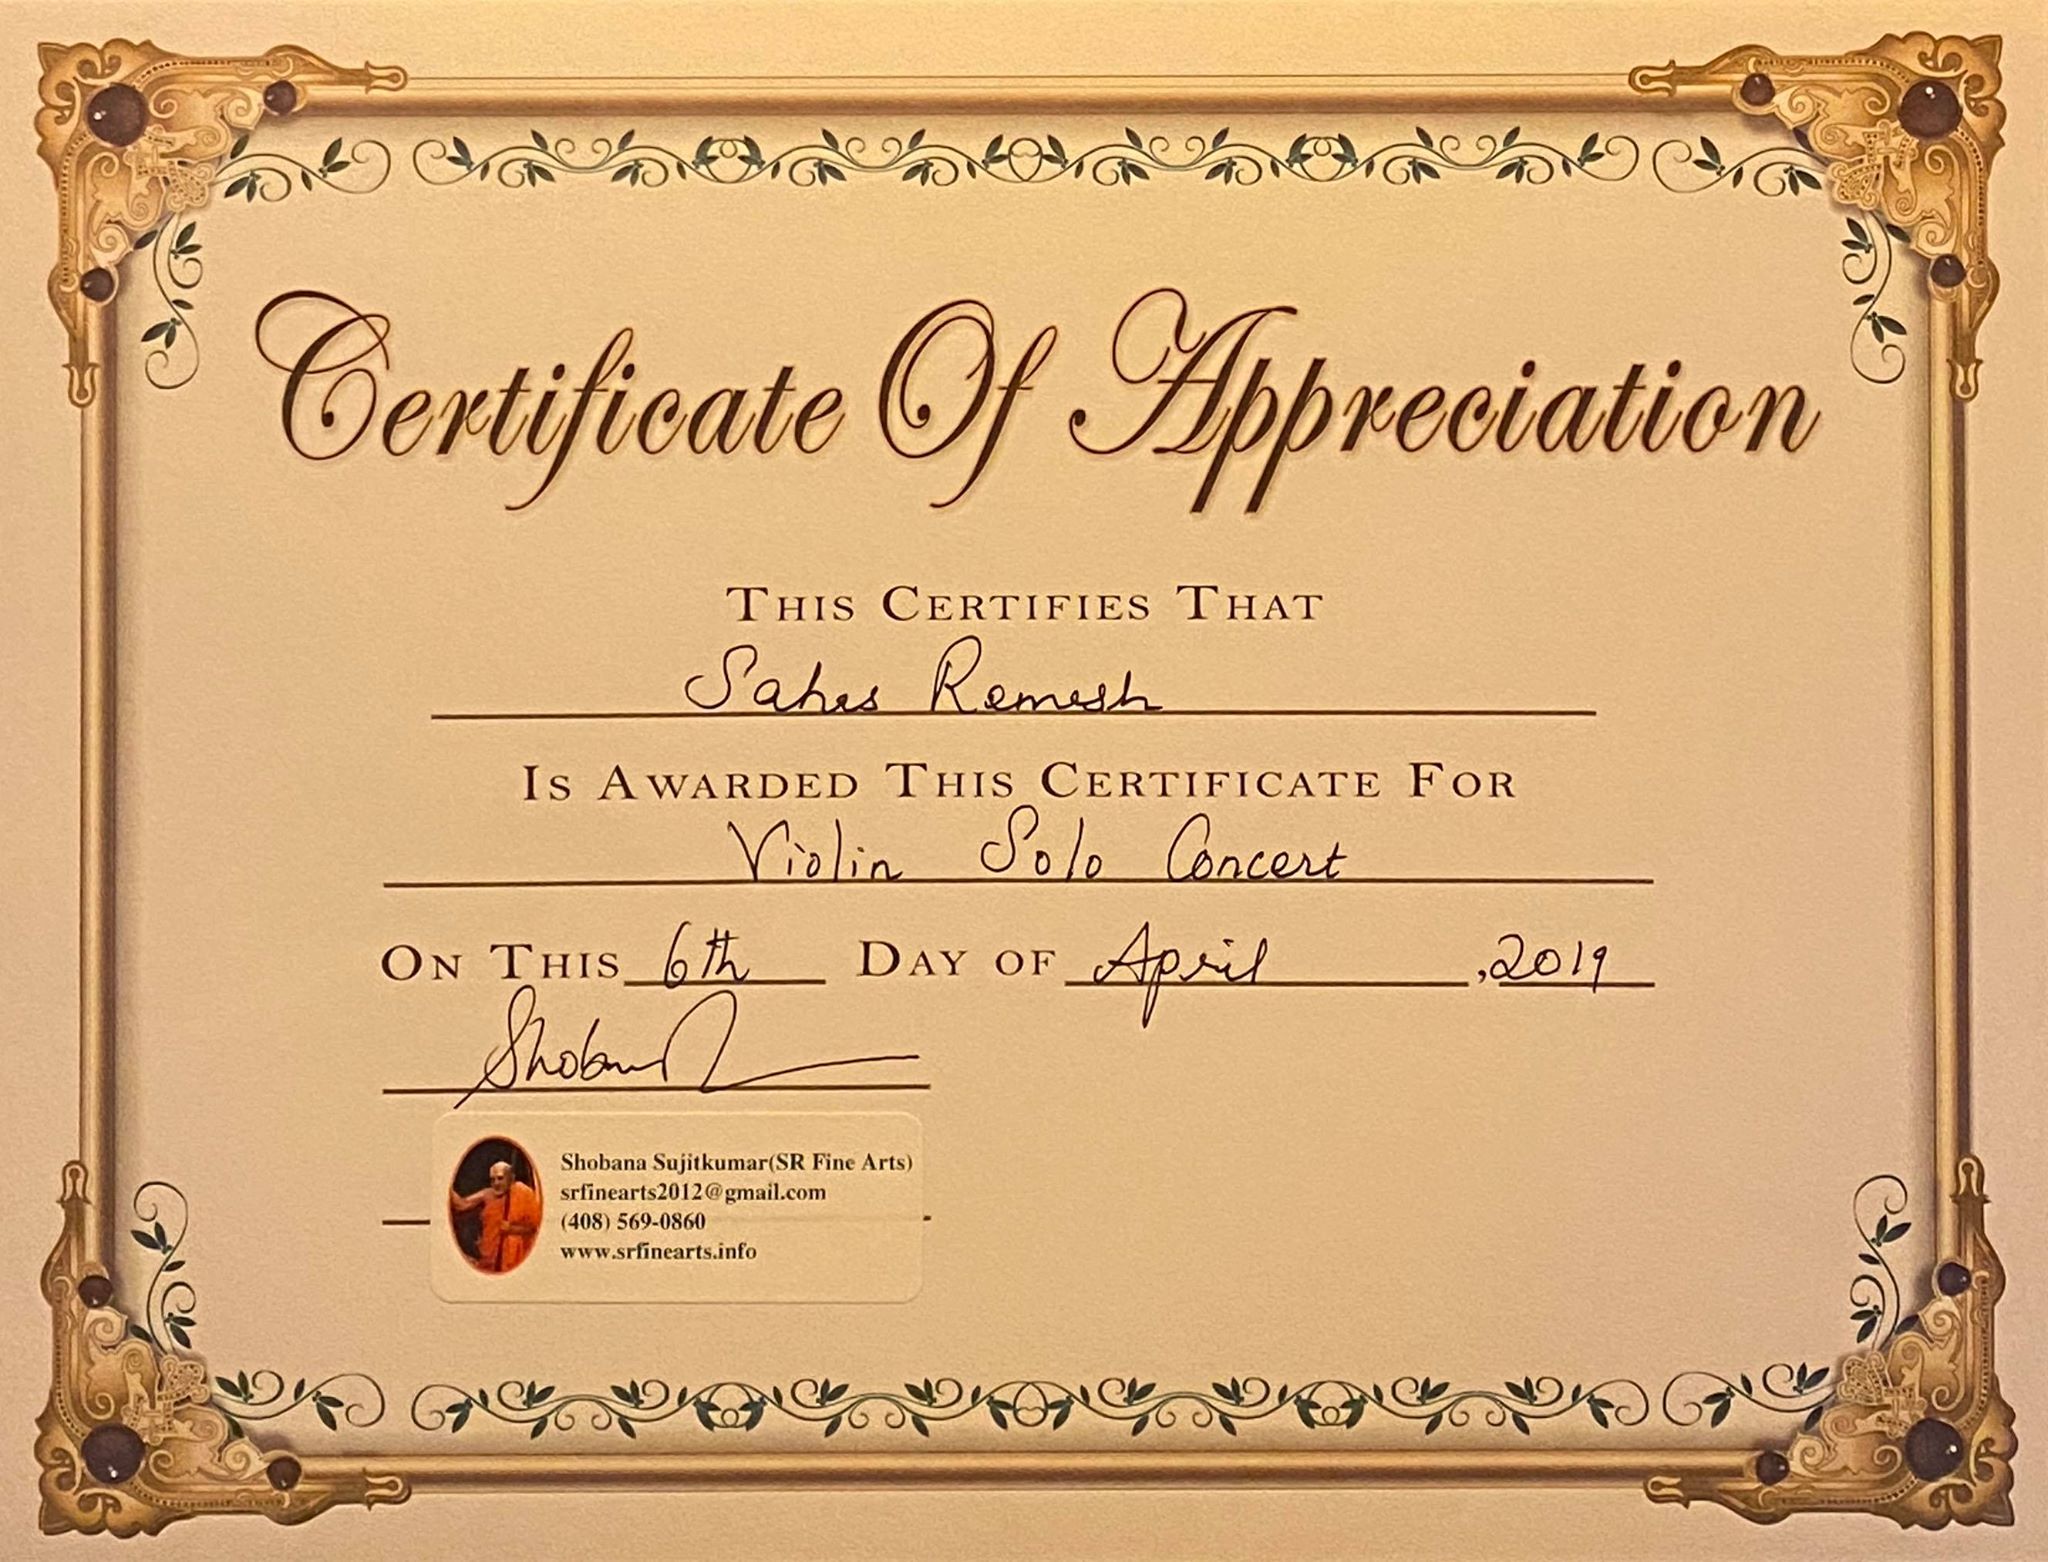 Certificate Of Appreciation
THIS CERTIFIES THAT
Sahas Ramesh
IS AWARDED THIS CERTIFICATE FOR
Violin Solo Concert
ON THIS 6th DAY OF April, 2019
Shobana
Shobana Sujitkumar(SR Fine Arts)
srfinearts2012@gmail.com
(408) 569-0860
www.srfinearts.info